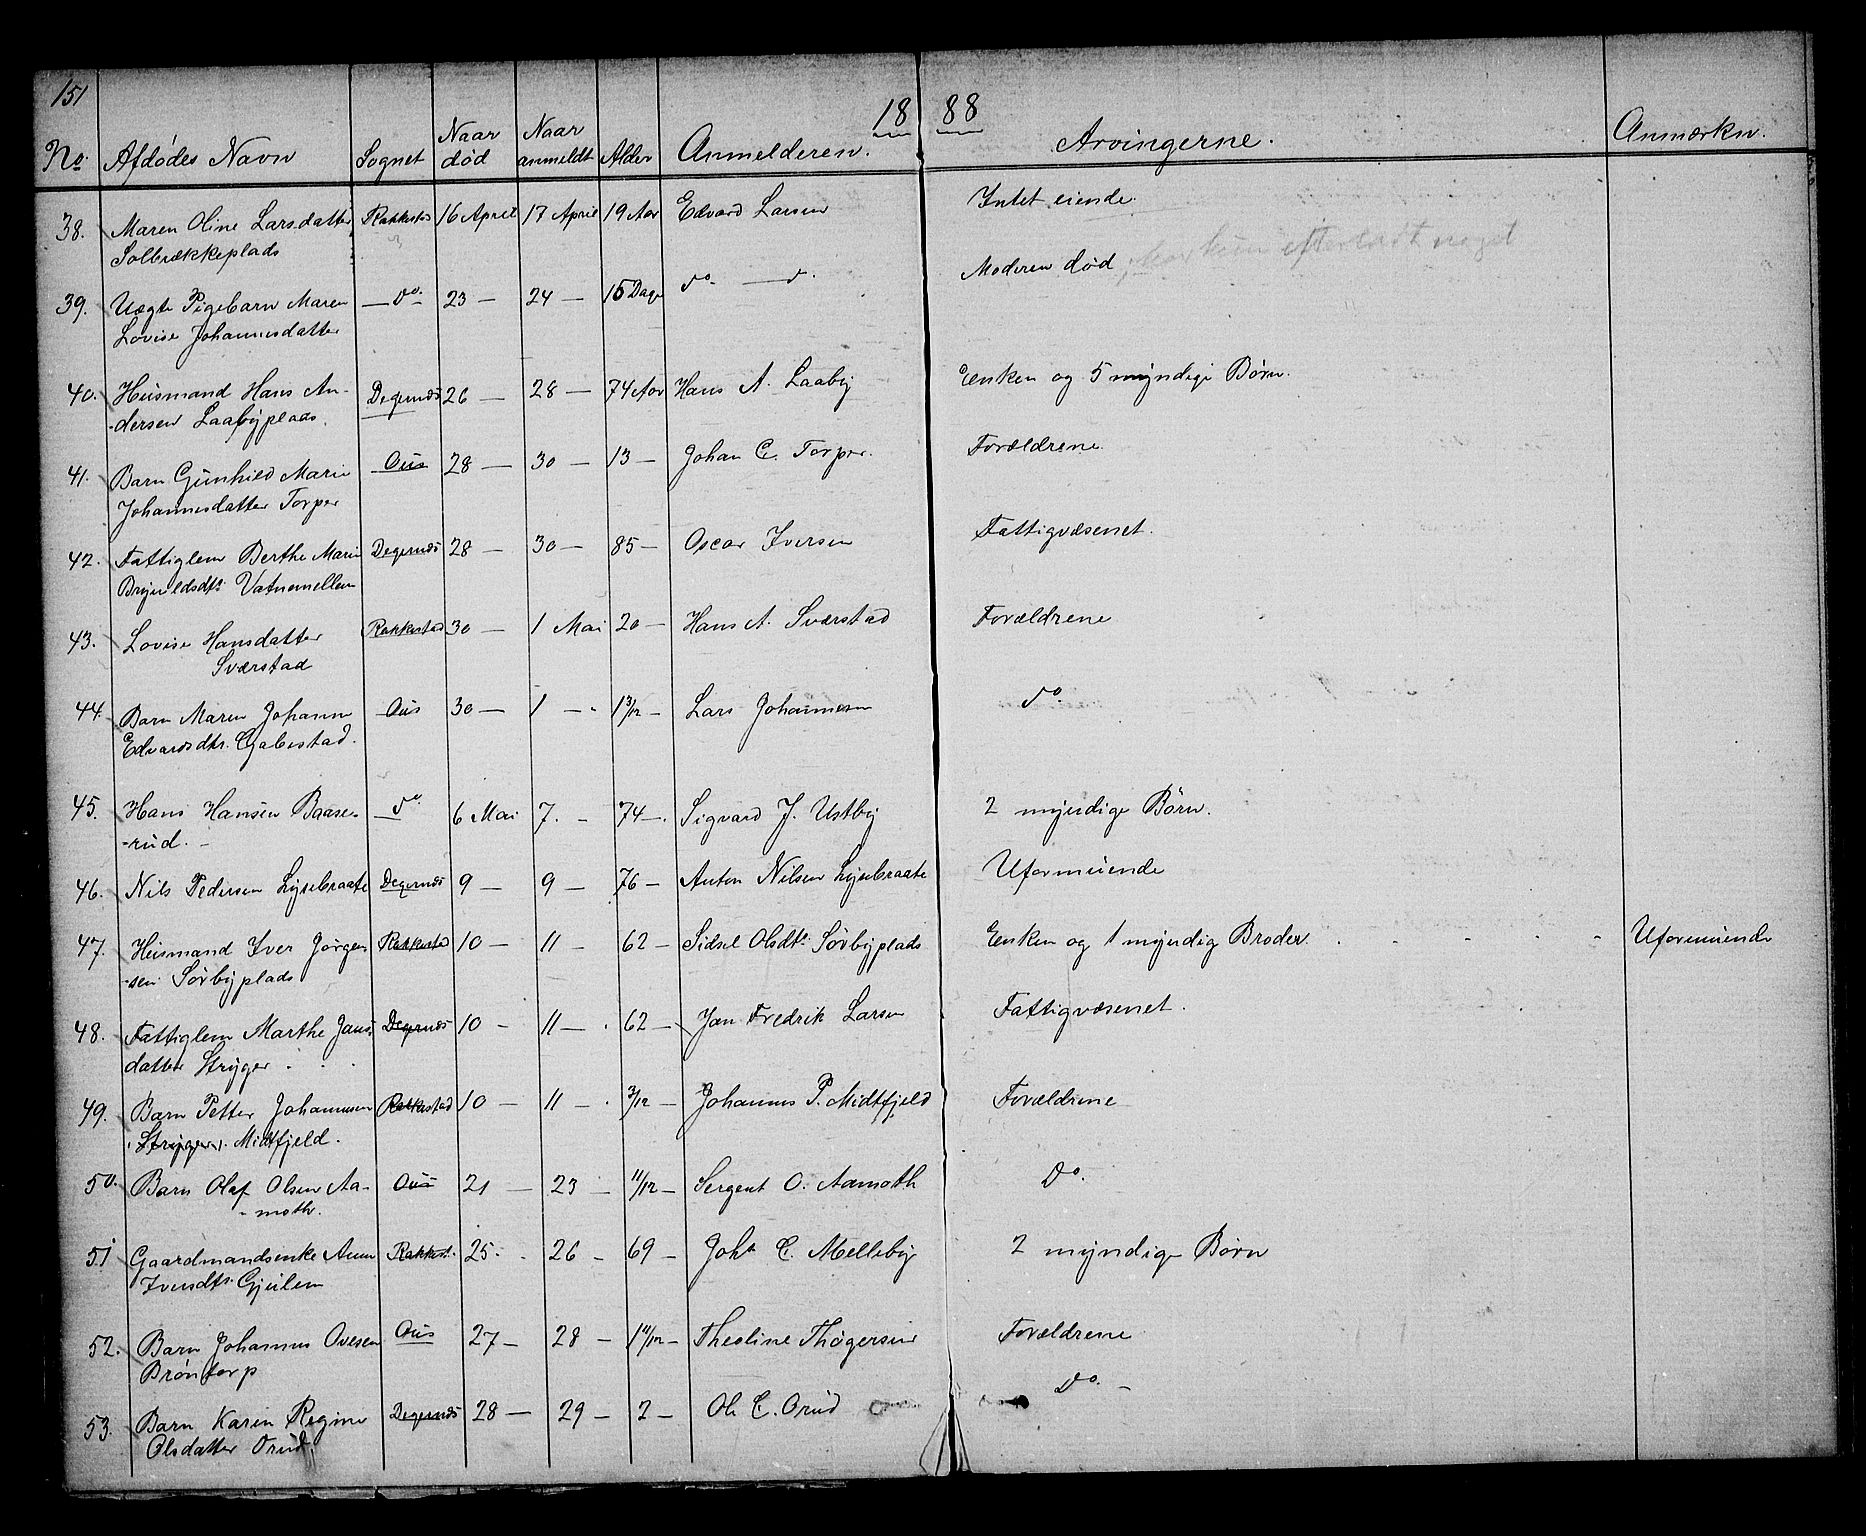 151
18 88
No. Afdødes Navn Sognet Naar død Naar anmeldt Alder Anmelderen. Arvingerne. Anmærkn.
38. Maren Oline Larsdatter Rakkestad 16 April 17 April 19 Aar Edvard Larsen Intet eiende.
Solbrækkeplads
efterladt noget
39. Uægte Pigebarn Maren — do. — 23 — 24 — 15 Dage do. — d. Moderen død
Lovise Johannesdatter
40. Husmand Hans An- Degernæs 26 — 28 — 74 Aar Hans A. Laaby Enken og 5 myndige Børn.
-dersen Laabyplads.
41. Barn Gunhild Marie Ous 28 — 30 — 13 — Johan C. Torper. Forældrene
Johannesdatter Torper
42. Fattiglem Berthe Marie Degernæs 28 — 30 — 85 — Oscar Iversen Fattigvæsenet.
Brynildsdtr. Vatnemellem
43. Lovise Hansdatter Rakkestad 30 — 1 Mai 20 — Hans A. Sværstad Forældrene
Sværstad
44. Barn Maren Johanne Ous 30 — 1 — 1 3/12 — Lars Johannesen do
Edvardsdtr. Gabestad.
45. Hans Hansen Baase- do 6 Mai 7. — 74 —. Sigvard J. Ustby 2 myndige Børn.
-rud. —
46. Nils Pedersen Lysebraate Degernæs 9 — 9 — 76 — Anton Nilsen Lysebraate Uformuende
47. Husmand Iver Jørgen- Rakkestad 10 — 11 — 62 — Sidsel Olsdtr. Sørbyplads Enken og 1 myndig Broder Uformuende
-sen Sørbyplads
48. Fattiglem Marthe Jans- Degernæs 10 — 11 — 62 — Jan Fredrik Larsen Fattigvæsenet.
datter Stryger
49. Barn Petter Johannesen Rakkestad 10 — 11 — 3/12 — Johannes P. Midtfjeld Forældrene
Stryger Midtfjeld.
50. Barn Olaf Olsen Aa- Ous 21 — 23 — 11/12 — Sergent O. Aamoth Do.
- moth.
51 Gaardmandsenke Anne Rakkest. 25. 26 — 69 — Johs C. Melleby 2 myndige Børn
Iversdtr. Gjulem
52. Barn Johannes Ovesen Ous 27 — 28 — 1 11/12 — Theoline Thøgersen Forældrene
Brøntorp
53. Barn Karen Regine Degernæs 28 — 29 — 2 — Ole C. Orud Do. —
Olsdatter Orud.